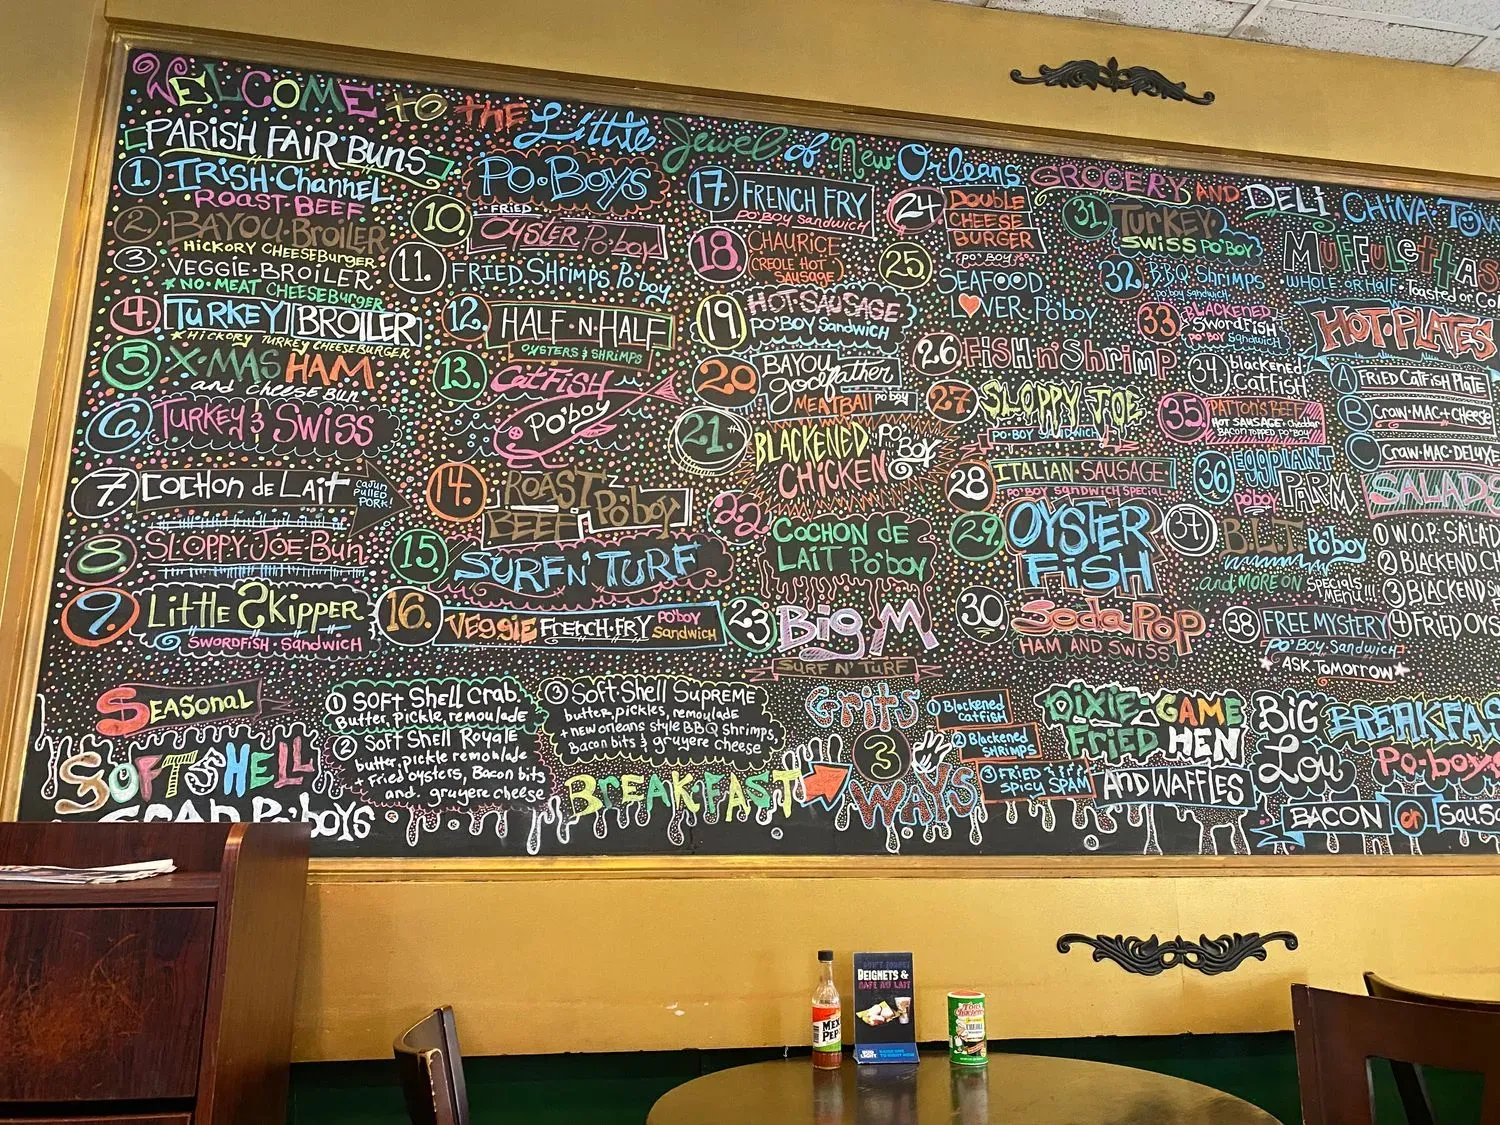 WELCOME to the Little Jewel of New Orleans GROCERY AND DELI CHINA·TOW
PARISH FAIR·BUNS
1. IRISH·Channel
ROAST·BEEF
2. BAYOU·BROILER
HICKORY CHEESEBURGER
3 VEGGIE·BROILER
*NO·MEAT CHEESEBURGER
4. TURKEY BROILER
*HICKORY TURKEY CHEESEBURGER
5. X·MAS HAM
and cheese BUN
6. TURKEY & SWISS
7. COCHON de LAIT
CAJUN PULLED PORK!
8 SLOPPY·JOE BUN
9. LITTLE SKIPPER
SWORDFISH·SANDWICH
PO·BOYS
10. FRIED
OYSTER Po'boy
11. FRIED SHRIMPS Po'boy
12. HALF·N·HALF
OYSTERS & SHRIMPS
13. CATFISH
PO'BOY
14. ROAST BEEF Po'boy
15 SURF N' TURF
16. VEGGIE FRENCH·FRY PO'BOY SANDWICH
17. FRENCH FRY
PO'BOY SANDWICH
18 CHAURICE
(CREOLE HOT SAUSAGE)
19. HOT·SAUSAGE
PO'BOY SANDWICH
20. BAYOU godfather
MEATBALL po'boy
21. BLACKENED CHICKEN PO'BOY
22 COCHON DE LAIT PO'BOY
23 Big M
SURF N' TURF
24 DOUBLE CHEESE BURGER
(PO'BOY)
25. SEAFOOD
L♥VER·PO'BOY
26 FISH n' SHRIMP
27. SLOPPY JOE
PO·BOY SANDWICH
28 ITALIAN·SAUSAGE
PO'BOY SANDWICH SPECIAL
29. OYSTER FISH
30 SODA POP
HAM AND SWISS
31. TURKEY
SWISS PO'BOY
32. BBQ SHRIMPS
po'boy sandwich
33 BLACKENED SWORDFISH
PO'BOY SANDWICH
34 blackened CATFISH
35. PATTON'S BEEF
HOT SAUSAGE + cheddar
BACON TOPPED PO'BOY
36 EGGPLANT PARM
po'boy
37. B.L.T PO'BOY
and MORE ON SPECIALS MENU!!!
38 FREE MYSTERY
PO'BOY SANDWICH
*ASK TOMORROW*
MUFFULETTAS
WHOLE·OR·HALF·Toasted or Co
HOT·PLATES
A FRIED CATFISH PLATE
B CRAW·MAC+CHEESE
C CRAW·MAC·DELUXE
SALADS
1 W.O.P. SALAD
2 BLACKENED CH
3 BLACKENED S
4 FRIED OYS
SEASONAL
SOFT SHELL
CRAB PO'BOYS
1 SOFT SHELL CRAB
Butter, pickle, remoulade
2 SOFT SHELL ROYALE
butter, pickle remoulade
+ FRIED OYSTERS, BACON bits
and gruyere cheese
3 SOFT·SHELL SUPREME
butter, pickles, remoulade
+ new orleans style BBQ shrimps,
Bacon bits & gruyere cheese
BREAK·FAST
Grits
3
WAYS
1 Blackened catfish
2 Blackened SHRIMPS
3 FRIED SPICY SPAM
DIXIE·GAME
FRIED HEN
AND WAFFLES
BIG Lou
BREAKFAS
PO·BOYS
BACON or SAUS
BEIGNETS &
CAFE AU LAIT
BUD LIGHT